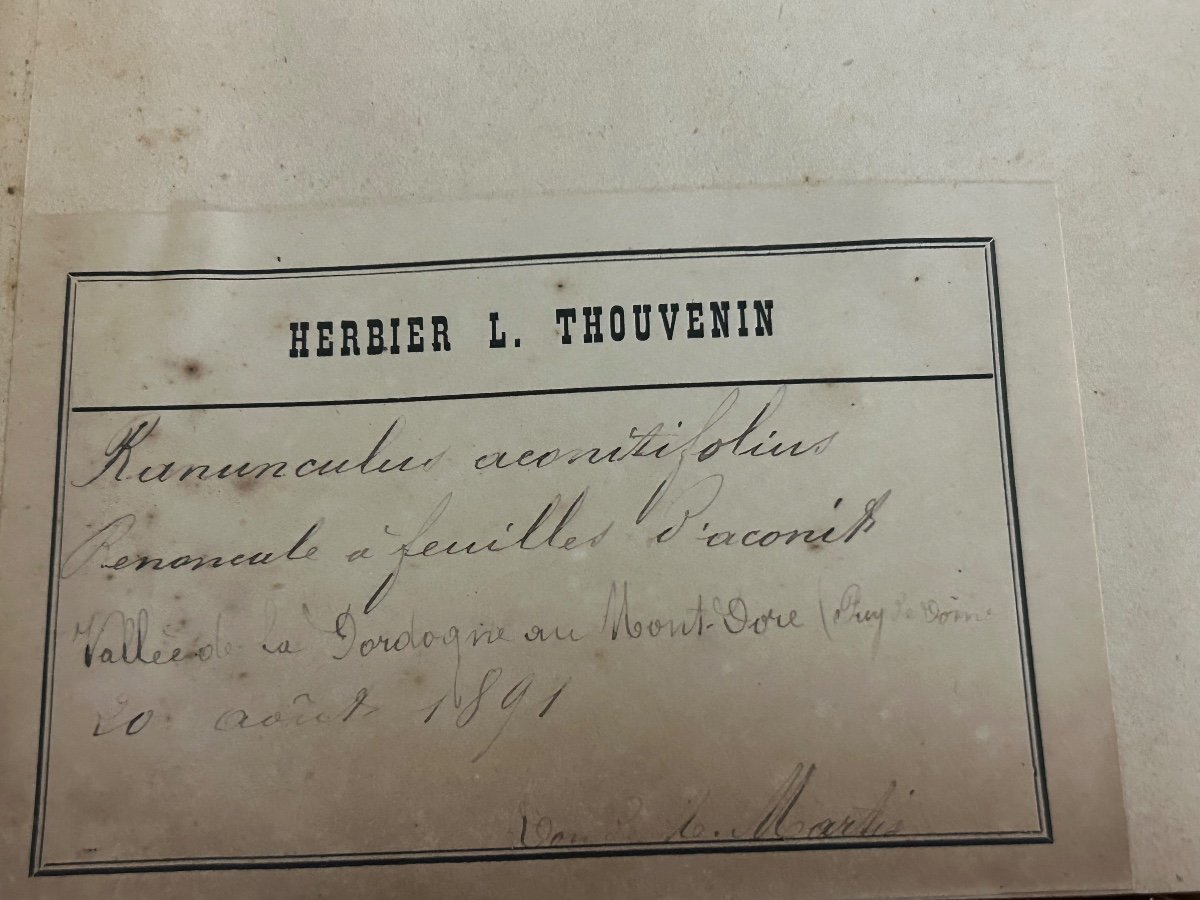 HERBIER L. THOUVENIN
Ranunculus aconitifolius
Renoncule à feuilles d'aconit
Vallée de la Dordogne au Mont-Dore (Puy de Dôme
20 août 1891
Martin